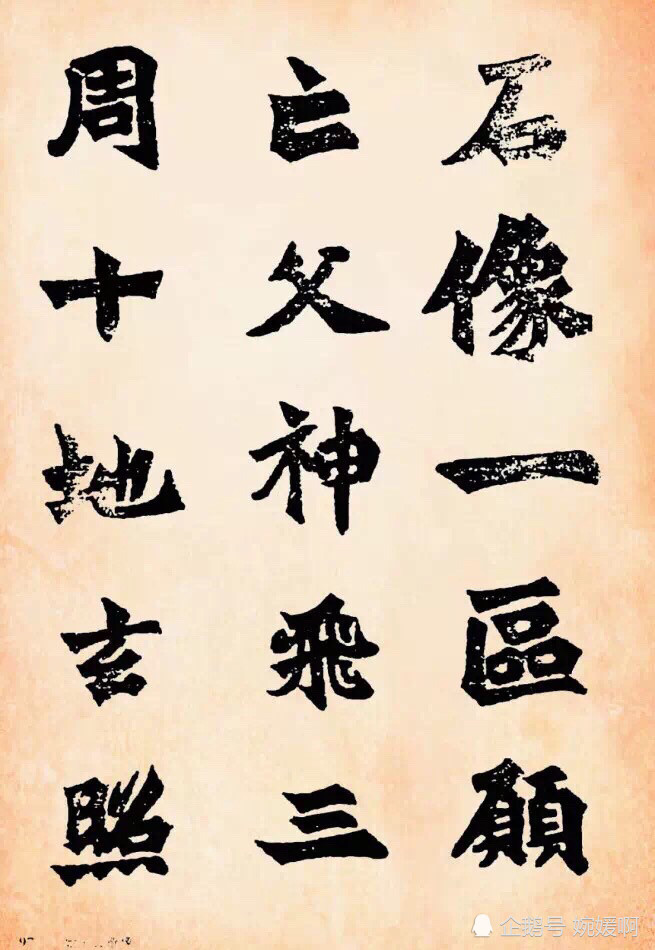 石像一區願
亡父神飛三
周十地玄照
97
企鹅号 婉媛啊